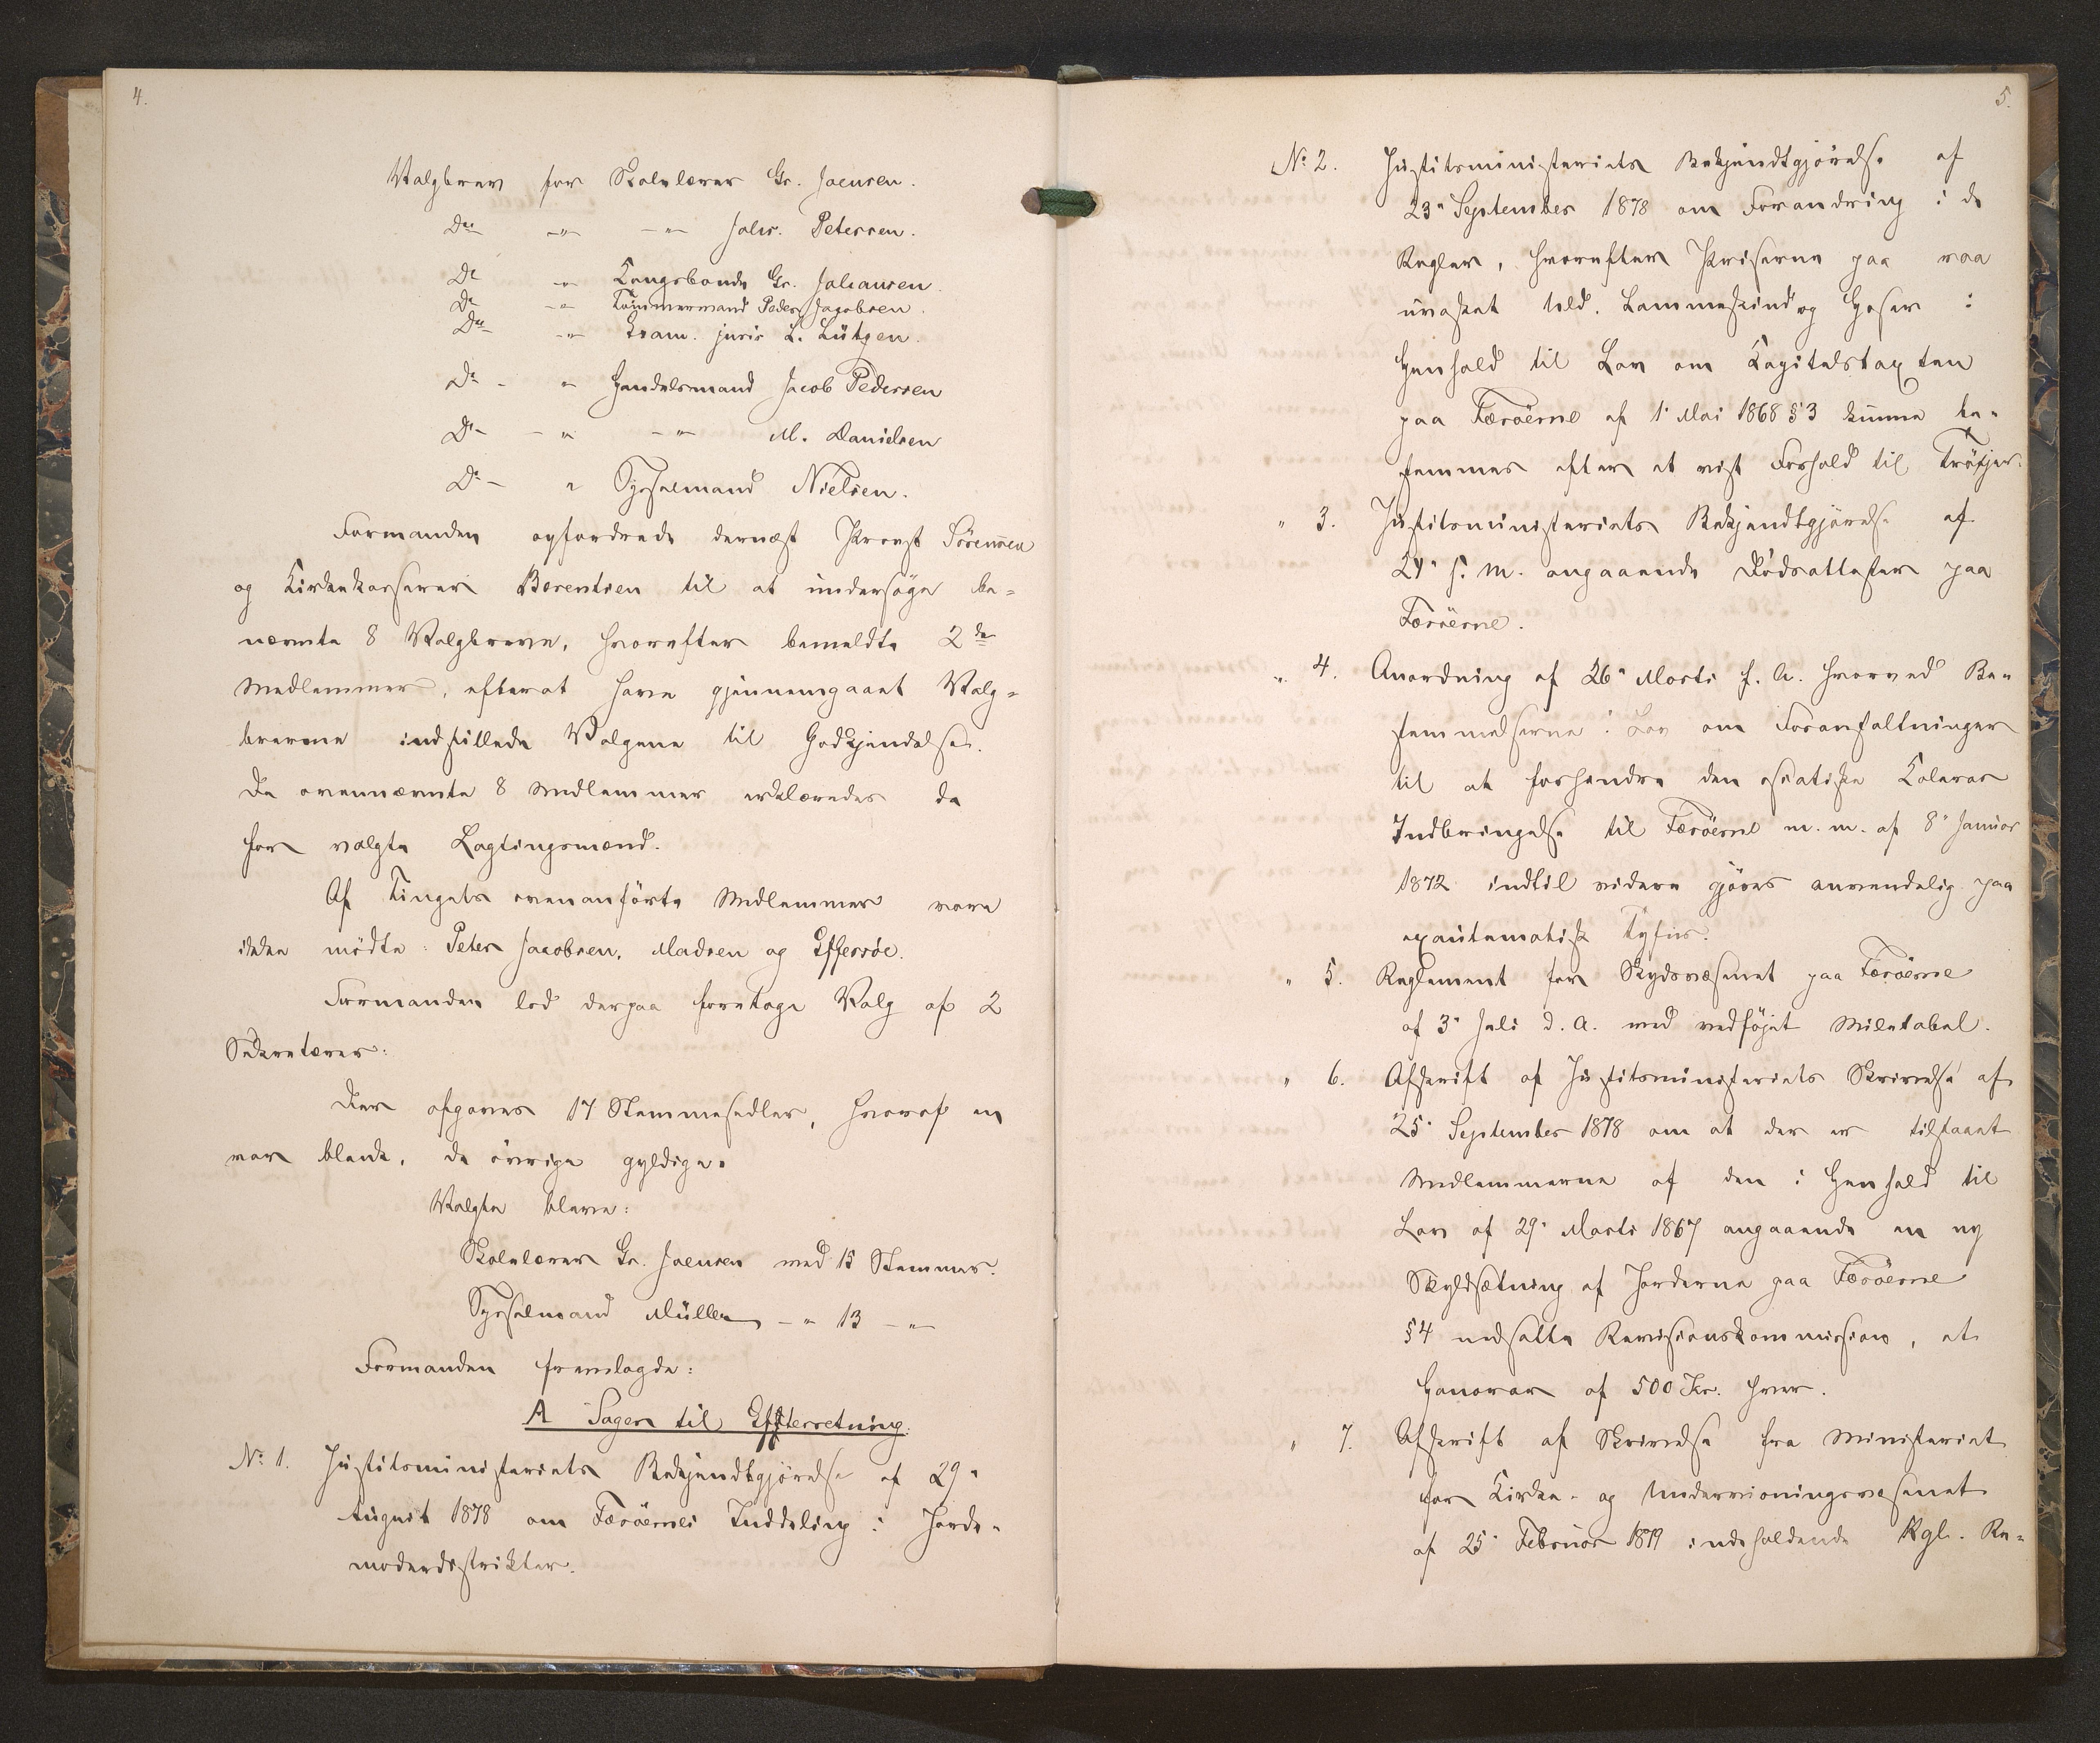 4.
Valgbrev for Skolelærer Gr. Joensen.
Do -"- -"- Johs. Petersen.
Do -"- Kongsbonde Gr. Johansen.
Do -"- Tömmermand Peder Jacobsen.
Do -"- Exam. juris L. Lützen.
Do - " Handelsmand Jacob Pedersen
Do - - " - -"- M. Danielsen
Do - " Sysselmand Nielsen.
Formanden opfordrede dernæst Provst Sörensen
og Kirkekasserer Bærentsen til at undersöge be=
nævnte 8 Valgbreve, hvorefter bemeldte 2de
Medlemmer, efterat have gjennemgaaet Valg=
brevene indstillede Valgene til Godkjendelse.
De ovennævnte 8 Medlemmer erklæredes da
for valgte Lagtingsmænd.
Af Tingets ovenanförte Medlemmer vare
ikke mödte: Peter Jacobsen, Madsen og Effersöe.
Formanden lod derpaa foretage Valg af 2
Sekretærer:
Der afgaves 17 Stemmesedler, hvoraf en
var blank, de övrige gyldige.
Valgte bleve:
Skolelærer Gr. Joensen med 15 Stemmer.
Sysselmand Müller -"- 13 -"-
Formanden fremlagde:
A Sager til Efterretning.
No 1. Justitsministeriets Bekjendtgjörelse af 29"
August 1878 om Færöernes Inddeling i Jorde-
moderdistrikter.
5.
No 2. Justitsministeriets Bekjendtgjörelse af
23" September 1878 om Forandring i de
Regler, hvorefter Priserne paa raa
uvasket Uld, Lammeskind og Hoser i
Henhold til Lov om Kapitelstaxten
paa Færöerne af 1" Mai 1868 § 3 kunne be-
stemmes efter et vist Forhold til Tröjer.
" 3. Justitsministeriets Bekjendtgjörelse af
24" s. M. angaaende Dödsattester paa
Færöerne.
" 4. Anordning af 26" Marts f. A. hvorved Be-
stemmelserne i Lov om Foranstaltninger
til at forhindre den asiatiske Koleras
Indbringelse til Færöerne m. m. af 8" Januar
1872 indtil videre gjöres anvendelig paa
exantematisk Tyfus.
" 5. Reglement for Skydsvæsenet paa Færöerne
af 3" Juli d. A. med vedföjet Miletabel.
" 6. Afskrift af Justitsministeriets Skrivelse af
25" September 1878 om at der er tilstaaet
Medlemmerne af den i Henhold til
Lov af 29" Marts 1867 angaaende en ny
Skyldsætning af Jorderne paa Færöerne
§ 4 nedsatte Revisionskommission, et
Honorar af 500 Kr. hver.
" 7. Afskrift af Skrivelse fra Ministeriet
for Kirke- og Undervisningsvæsenet
af 25" Februar 1879 indeholdende Kgl. Re-